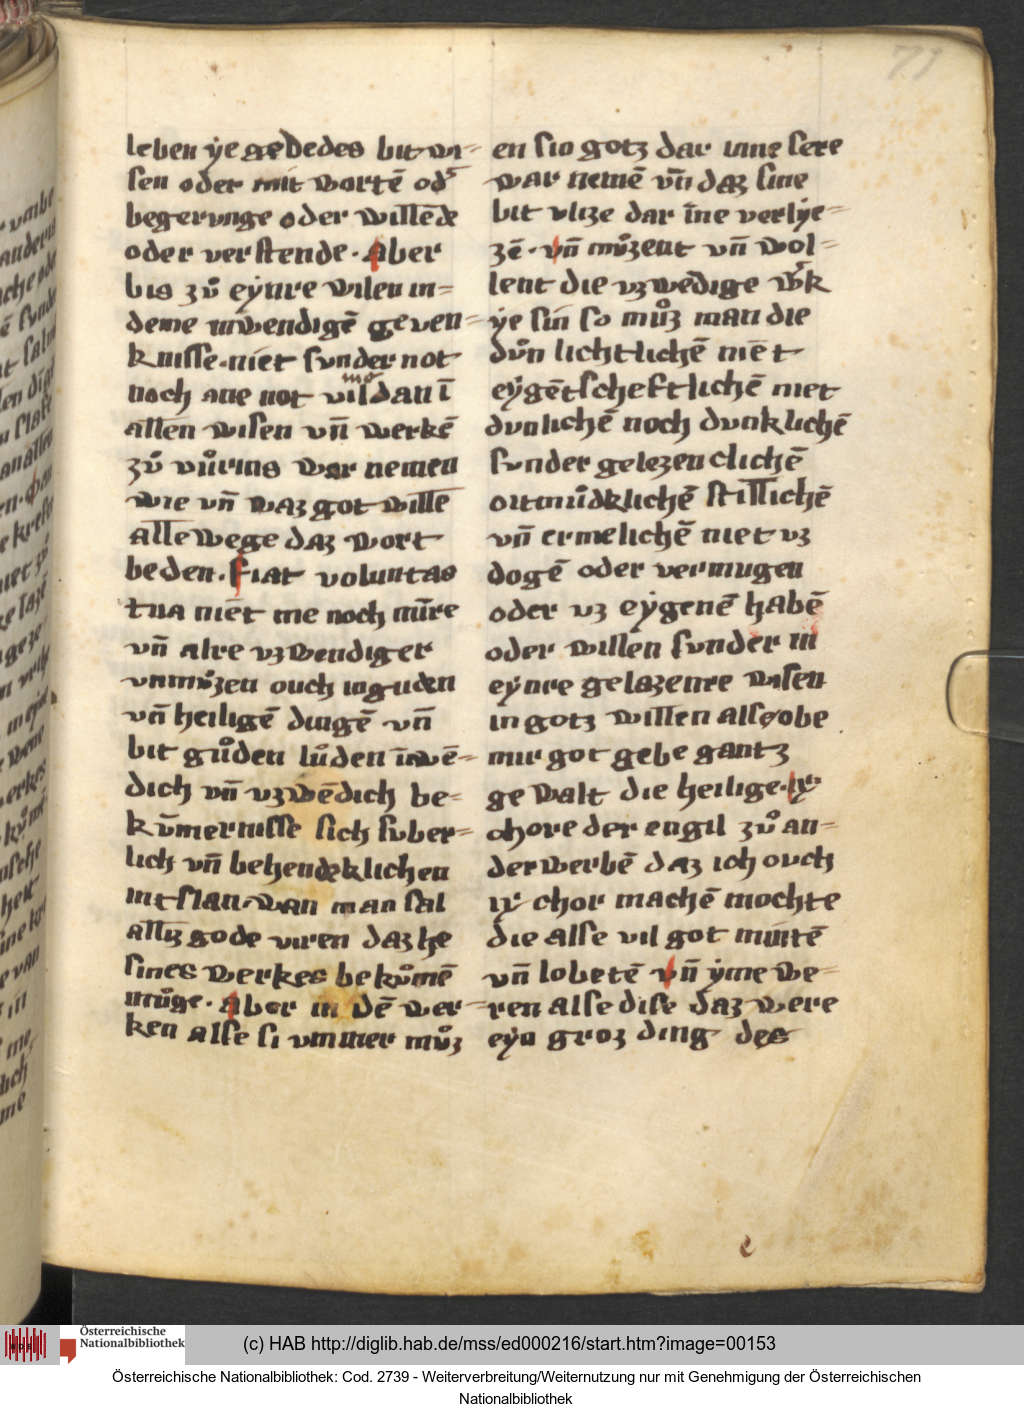 71
leben ẏe gebedes bit wi=
sen oder mit wortē od᷑
begerunge oder willēde
oder verstende · Aber
bis zů eẏnre wilen in=
deme inwendigē geven=
knisse · niet sunder not
noch ane not dan ī
allen wisen vn̄ werkē
zů vůrins war nemen
wie vn̄ waz got wille
alle wege daz wort
beden · fiat voluntas
tua niet me noch můre
vn̄ alre vzwendiger
vnmůzen ouch in guden
vn̄ heiligē dingē vn̄
bit gůden lůden inwē=
dich vn̄ vzwēdich be=
kūmernisse sich suber=
lich vn̄ behendeklichen
intslan wan man sal
alliz gode viren daz he
sines werkes bekůmē
můge · Aber in dē wer=
ken alse si vmmer můz
en sin gotz dar inne sere
war nemē vn̄ daz sine
bit vlize dar īne verlẏe=
zē · vn̄ můzent vn̄ wol=
lent die vzwēdige w᷑k
ẏe sin so můz man die
důn lichtlichē niet
eẏgētscheftlichē niet
dunlichē noch dunklichē
sunder gelezenclichē
oitmůdklichē stillichē
vn̄ ermelichē niet vz
dogē oder vermugen
oder vz eẏgenē habē
oder willen sunder in
eẏnre gelazenre wisen
in gotz willen alse obe
mir got gebe gantz
gewalt die heilige · ix
chore der engil zů an=
derwerbē daz ich ouch
ix chor machē mochte
die alse vil got mintē
vn̄ lobetē vn̄ ẏme we=
ren alse dise daz were
eẏn groz ding des
(c) HAB http://diglib.hab.de/mss/ed000216/start.htm?image=00153
Österreichische
Nationalbibliothek
Österreichische Nationalbibliothek: Cod. 2739 - Weiterverbreitung/Weiternutzung nur mit Genehmigung der Österreichischen
Nationalbibliothek